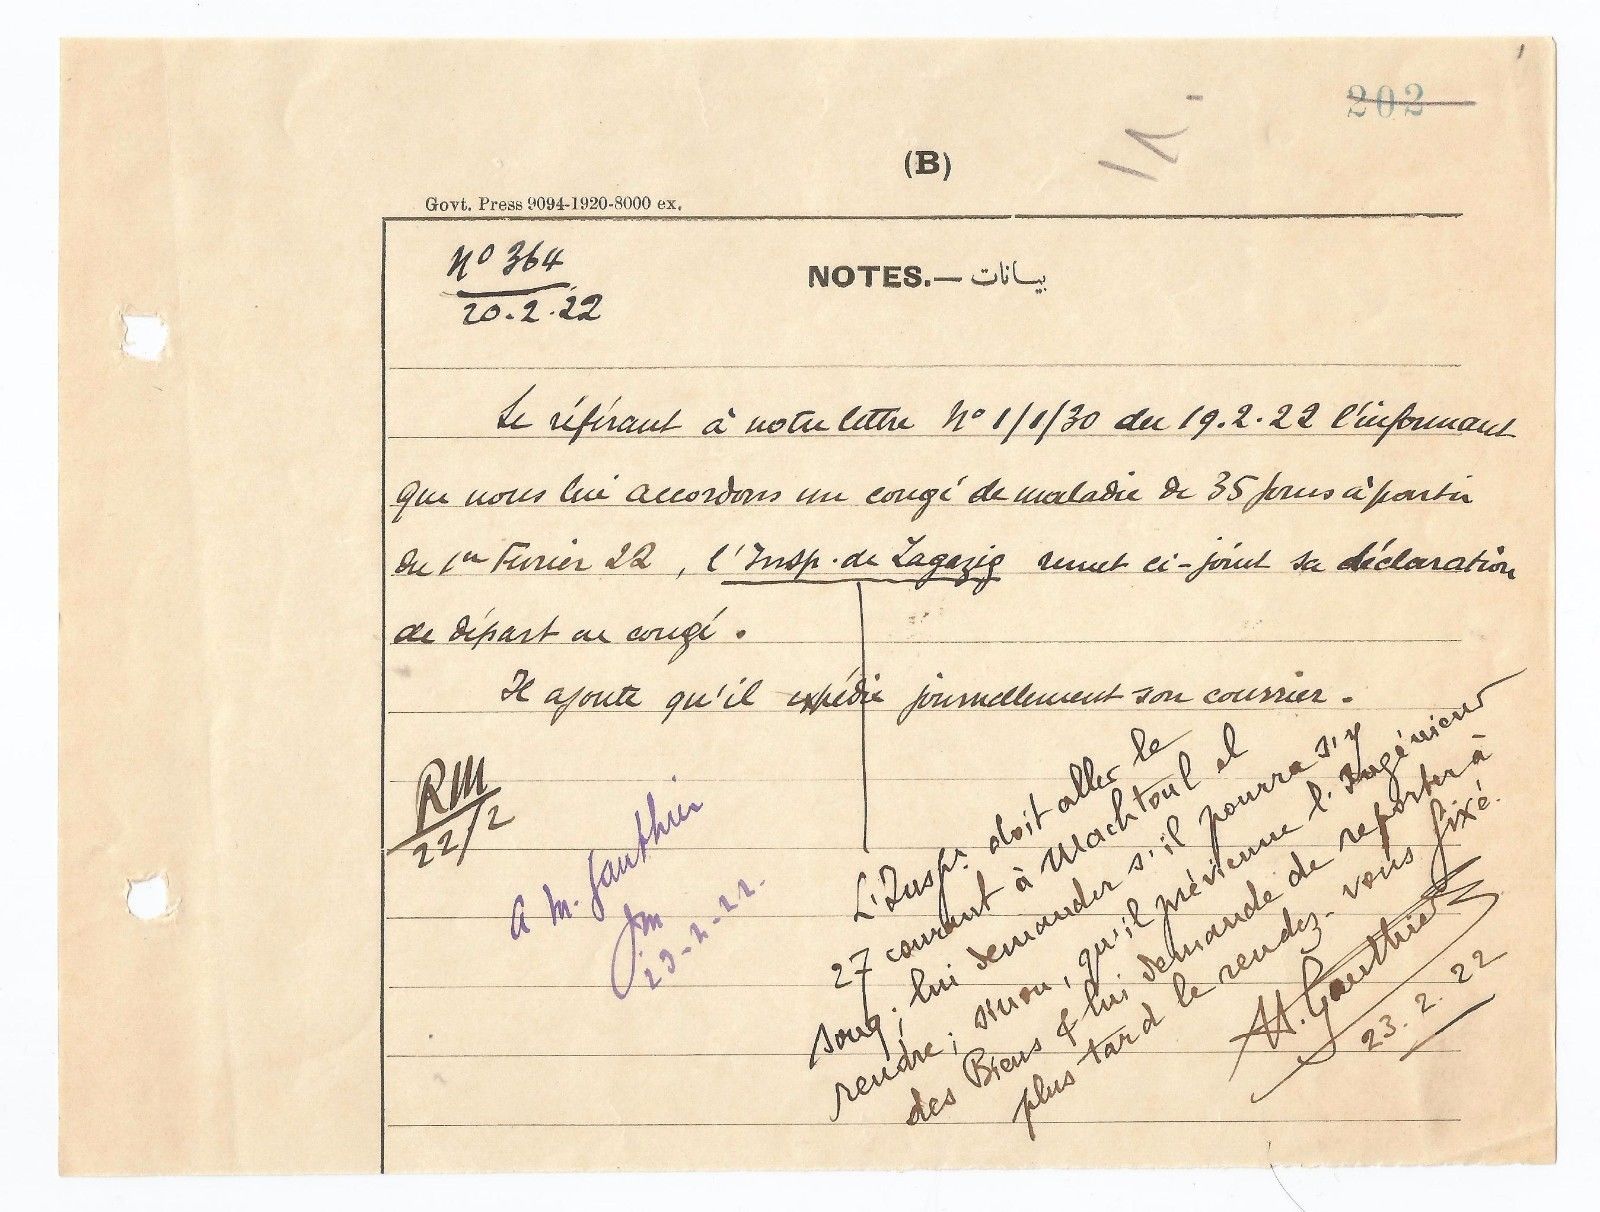 202
11-
(B)
Govt. Press 9094-1920-8000 ex.
N° 364
20.2.22
NOTES.— بيانات
Se référant à notre lettre N° 1/1/30 du 19.2.22 l'informant
que nous lui accordons un congé de maladie de 35 jours à partir
du 1er Février 22, l'Insp. de Zagazig remet ci-joint sa déclaration
de départ en congé.
Il ajoute qu'il expédie journellement son courrier.
RM
22/2
A M. Gauthier
Jm
23-2-22.
L'Inspr. doit aller le
27 courant à Machtoul el
souq; lui demander s'il pourra s'y
rendre; sinon, qu'il prévienne l'Ingénieur
des Biens & lui demande de reporter à
plus tard le rendez-vous fixé.
H. Gauthier
23.2.22